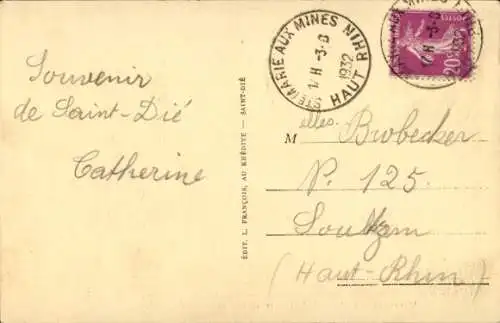 Souvenir
de Saint-Dié
Catherine
ÉDIT. L. FRANÇOIS, AU KHÉDIVE — SAINT-DIÉ
STE MARIE AUX MINES HAUT RHIN
17H -3-8
1932
20c
Melles. Brobecker
N. 125.
Soultzem
(Haut-Rhin)